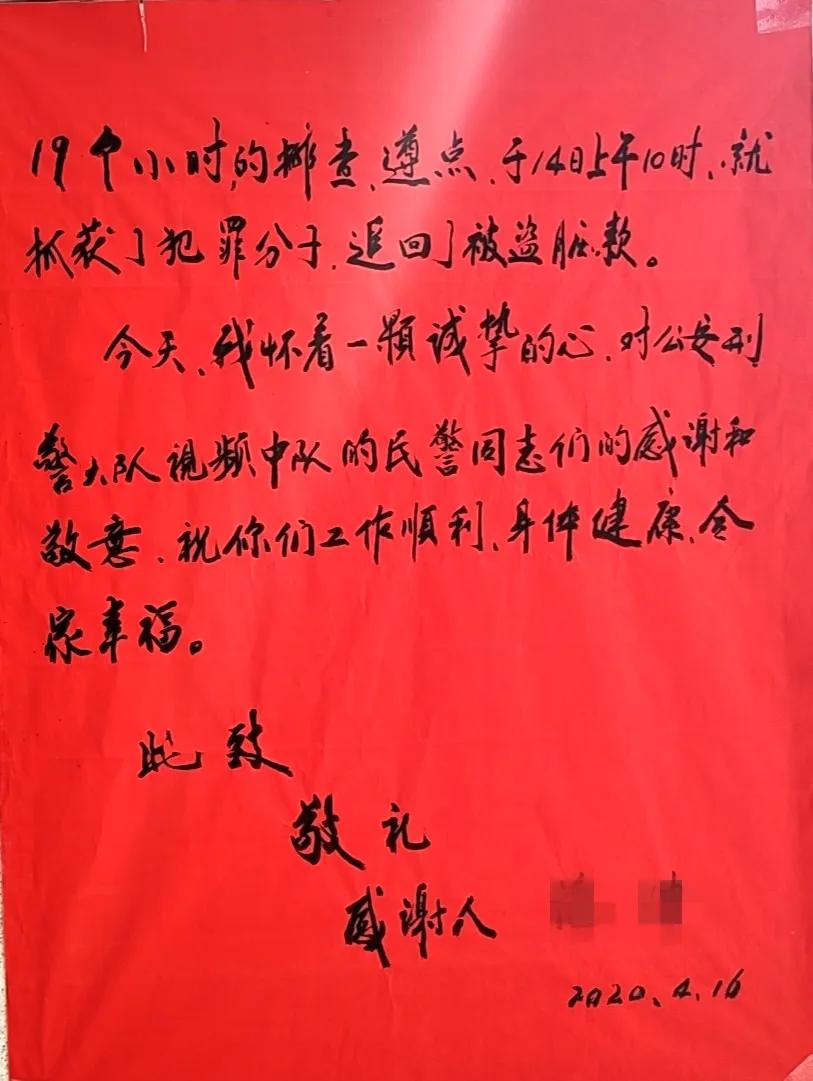 19个小时的排查、遵点、于14日上午10时、就
抓获了犯罪分子、追回了被盗脏款。
今天、我怀着一颗诚挚的心、对公安刑
警大队視频中队的民警同志们的感谢和
敬意、祝你们工作順利、身体健康、全
家幸福。
此致
敬礼
感谢人
2020.4.16